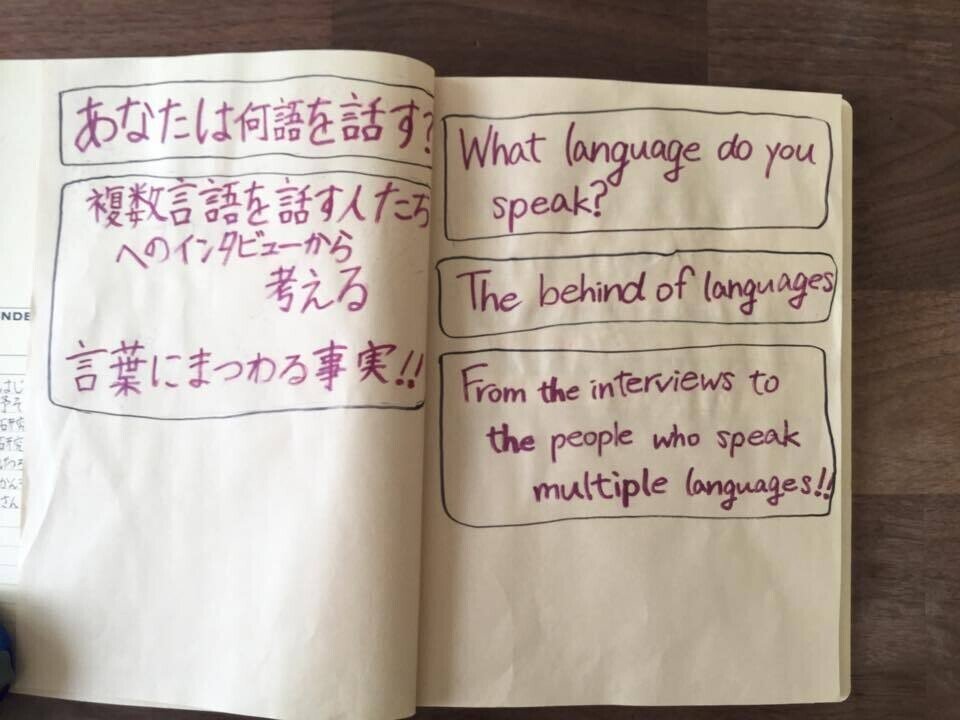 あなたは何語を話す?
複数言語を話す人たち
へのインタビューから
考える
言葉にまつわる事実!!
What language do you
speak?
The behind of languages
From the interviews to
the people who speak
multiple languages!!
NDE
はじ
予そ
研究
研究
けつろ
かんそ
さん